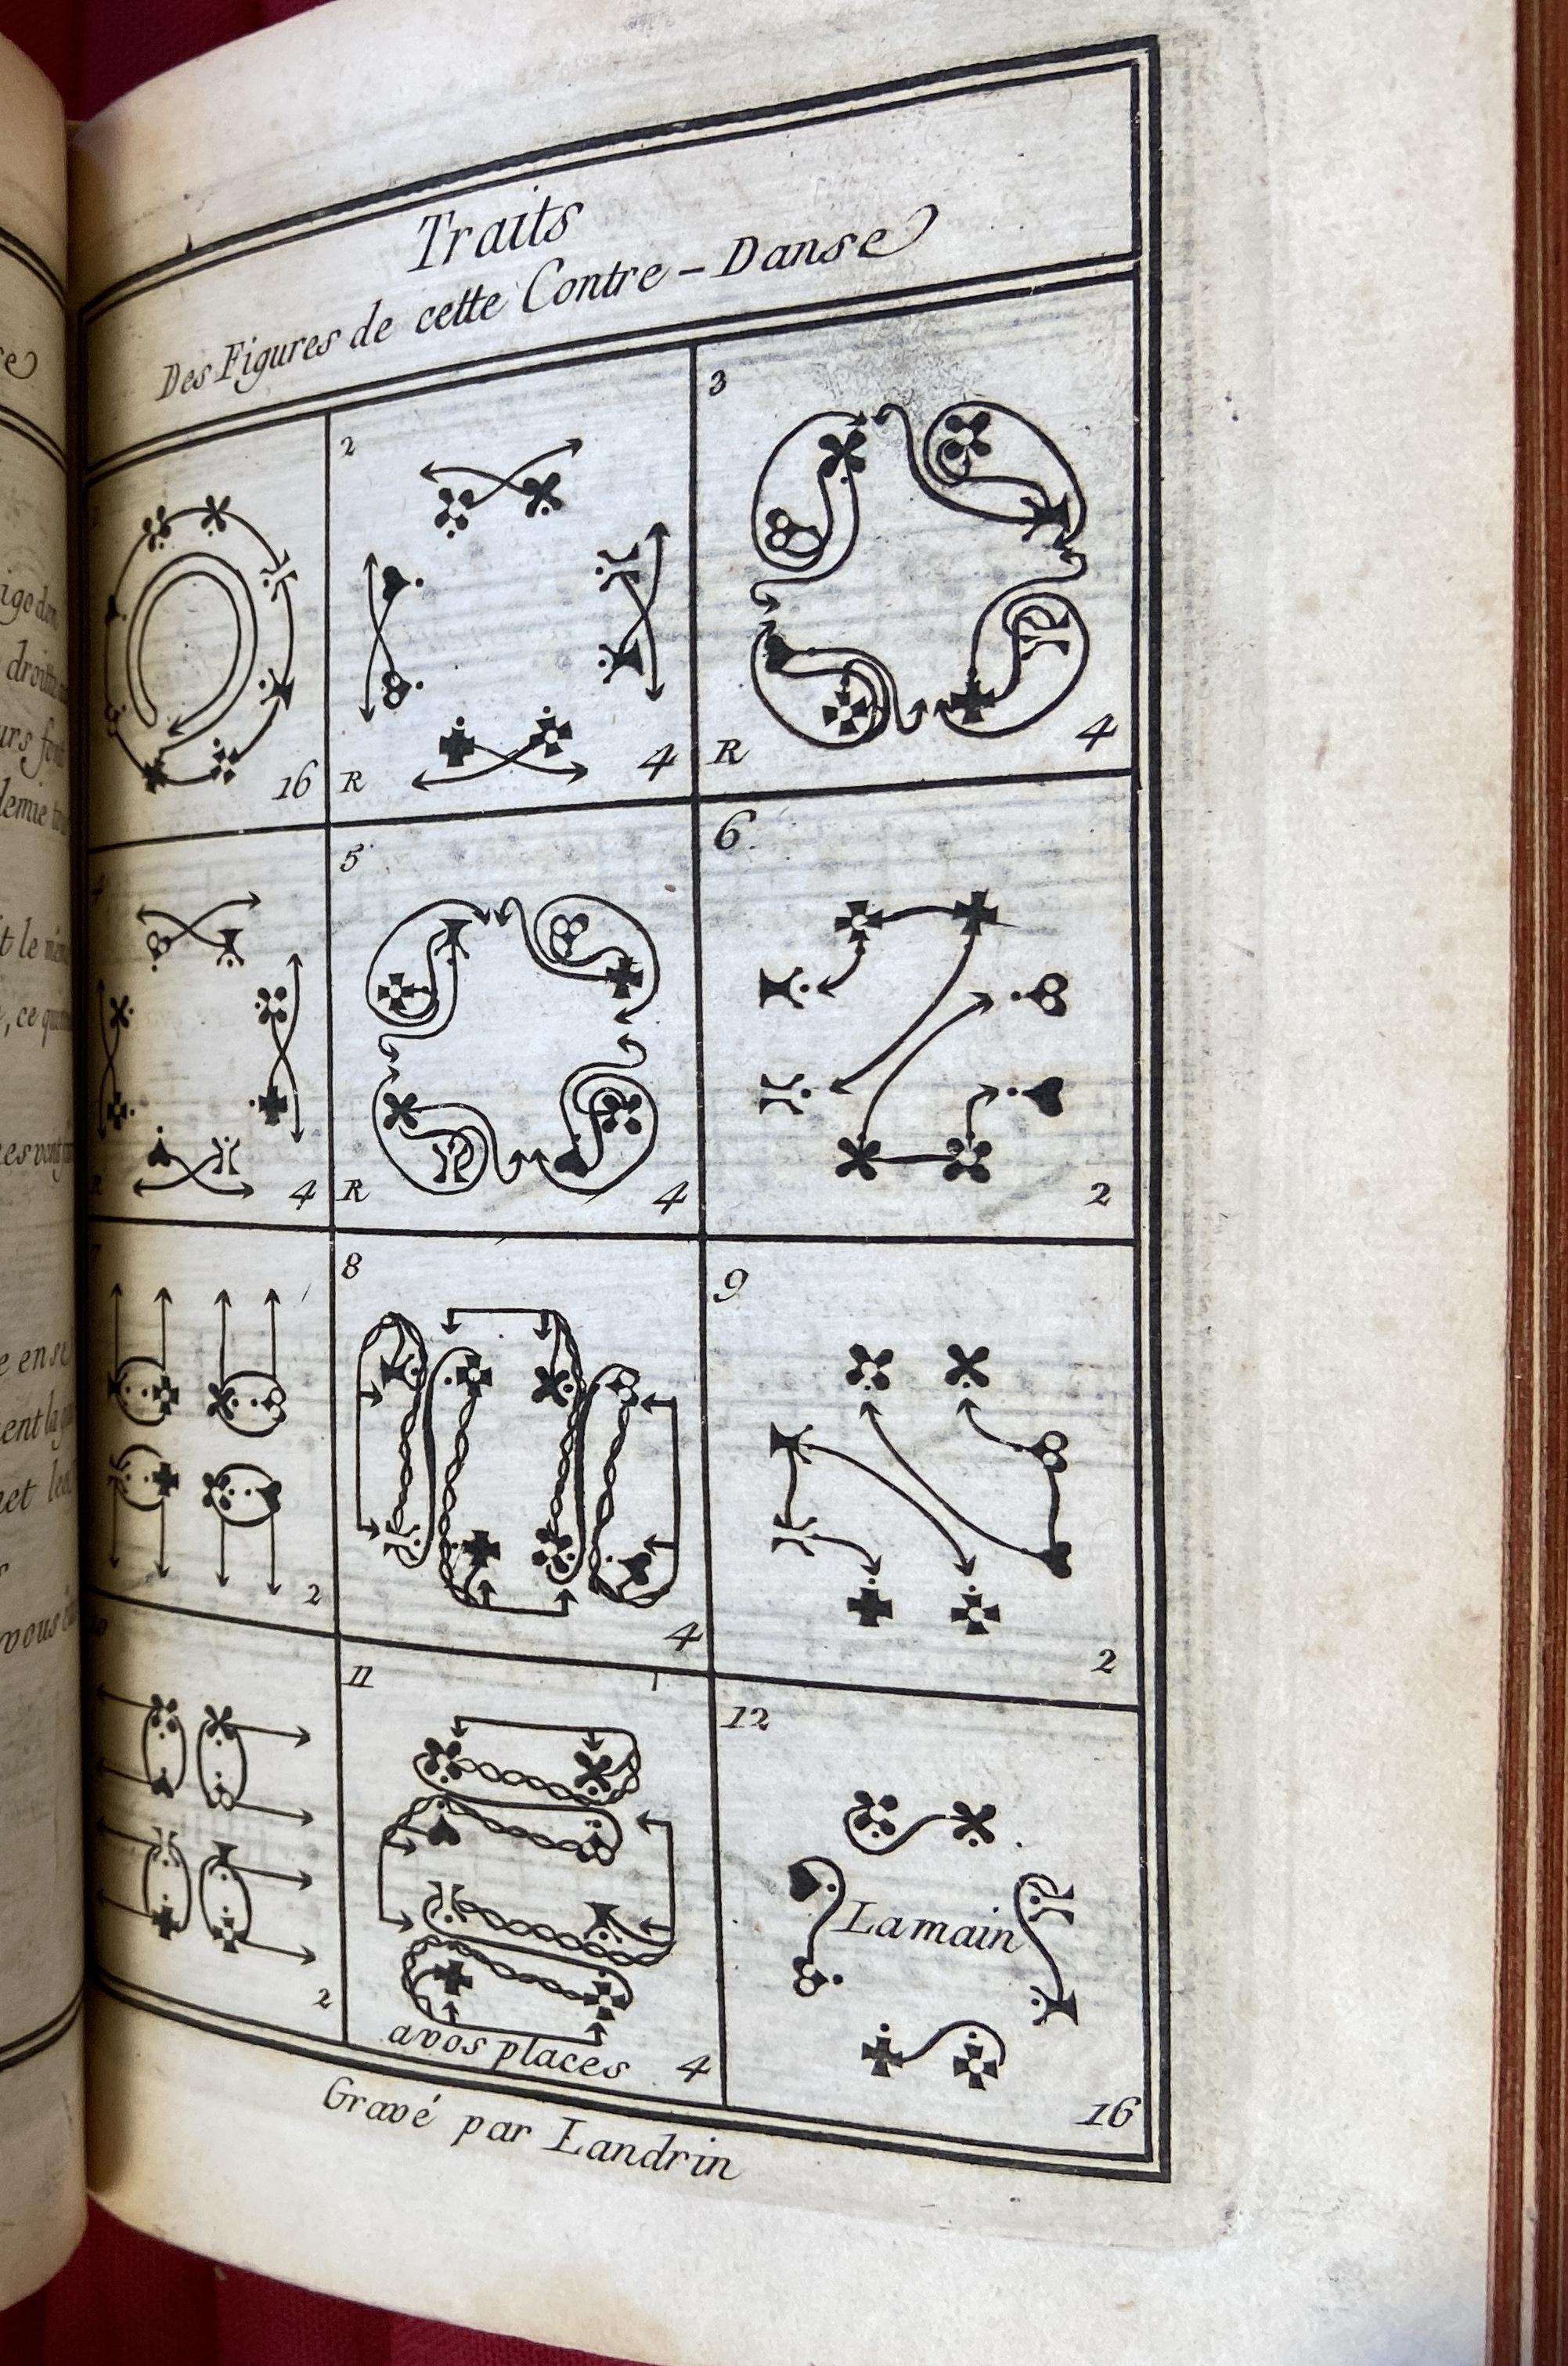 Traits
Des Figures de cette Contre-Danse
16
2
R 4
3
R 4
4
4
5
R 4
6.
2
7
2
8
4
9
2
2
11
avos places 4
12
La main
16
Gravé par Landrin